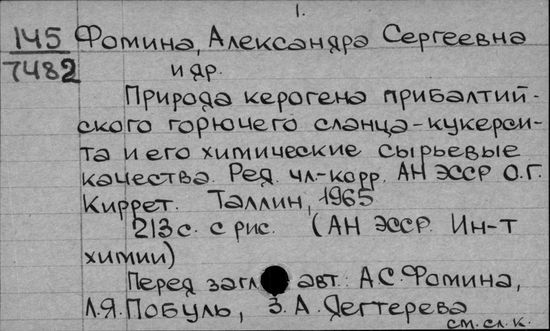 1.
145 Фомина, Александра Сергеевна
7482 и др.
Природа керогена прибалтий-
ского горючего сланца-кукерси-
та и его химические сырьевые
качества. Ред. чл-корр. АН ЭССР О.Г.
Киррет. Таллин, 1965
213 с. с рис. (АН ЭССР. Ин-т
химии)
Перед загл. авт.: А.С.Фомина,
Л.Я.Побуль, З.А.Дегтерева
см.сл.к.